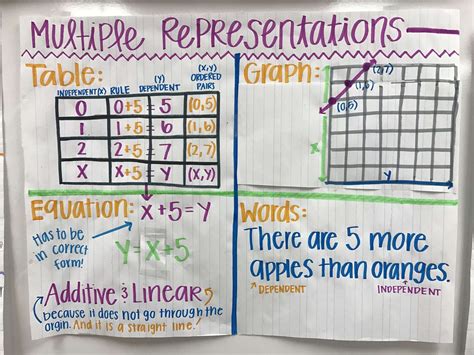 Multiple Representations
Table:
(X) (Y) (X,Y)
INDEPENDENT RULE DEPENDENT ORDERED PAIRS
0 0+5=5 (0,5)
1 1+5=6 (1,6)
2 2+5=7 (2,7)
X X+5=Y (X,Y)
Graph:
(2,7)
(1,6)
(0,5)
X
Y
Equation: X+5=Y
Has to be
in correct
form!
Y=X+5
Additive & Linear
because it does not go through the
orgin. And it is a straight line!
Words:
There are 5 more
apples than oranges.
DEPENDENT INDEPENDENT